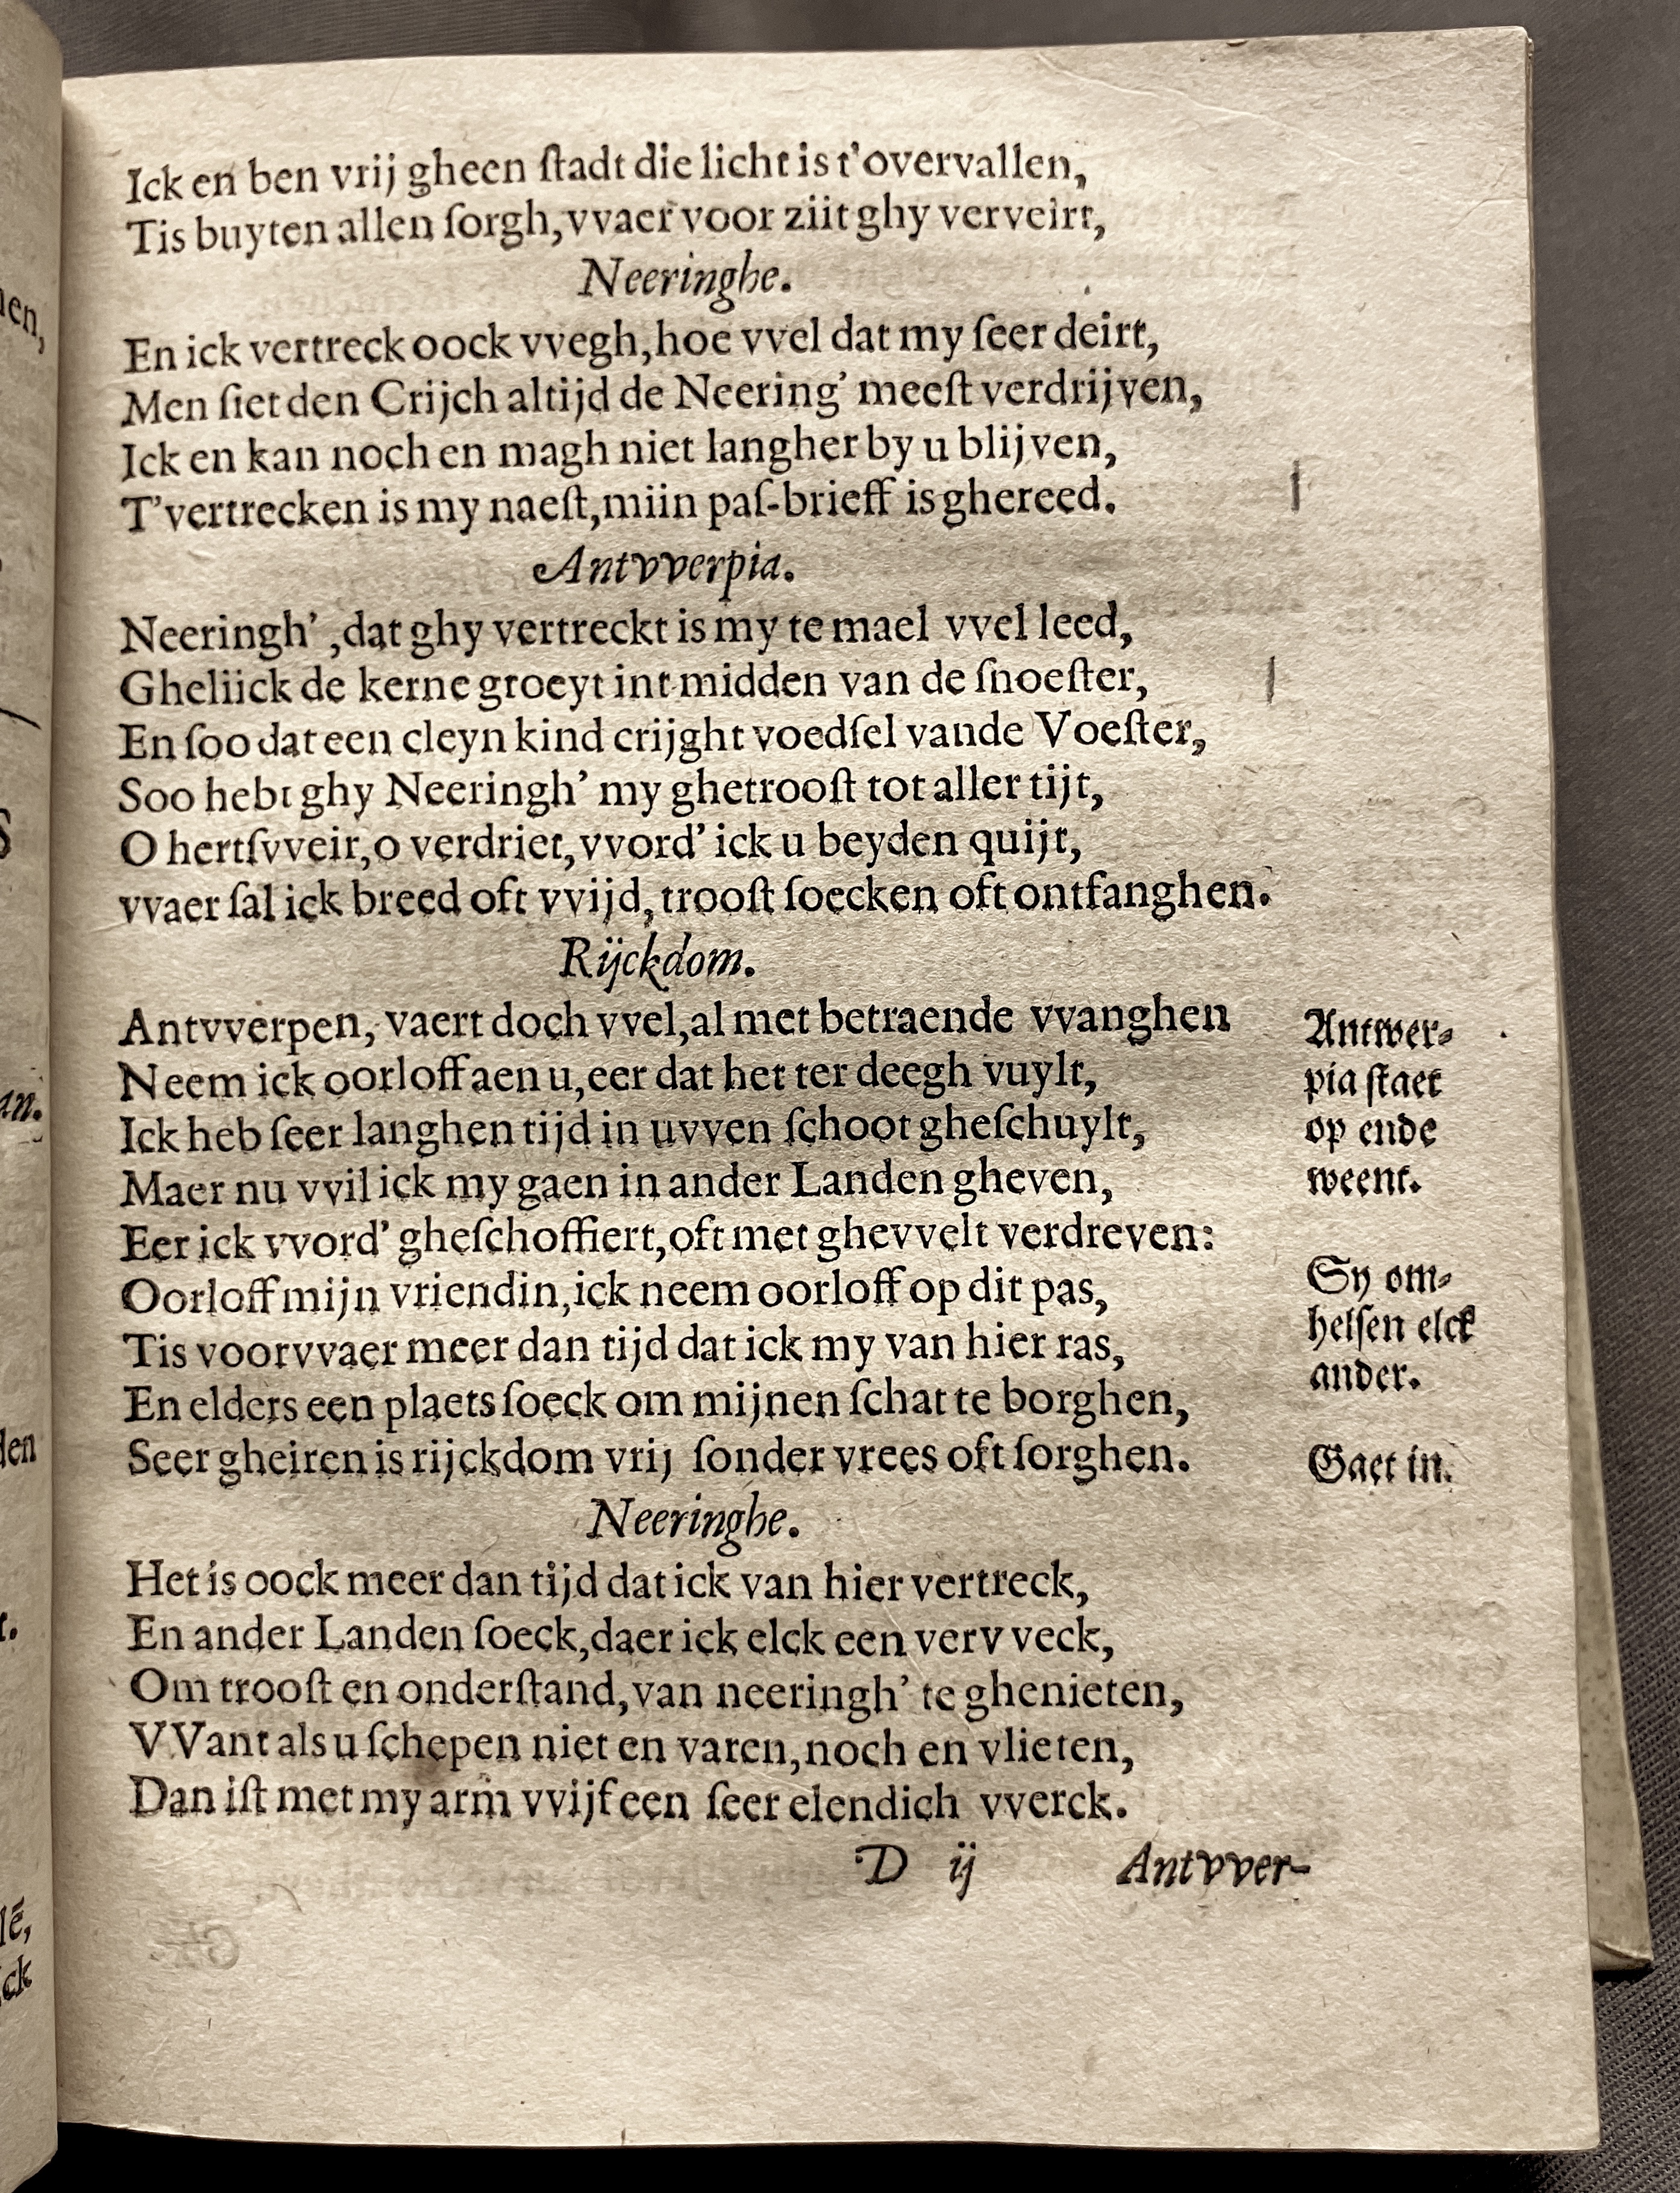 Ick en ben vrij gheen ſtadt die licht is t'overvallen,
Tis buyten allen ſorgh, vvaer voor ziit ghy verveirt,
Neeringhe.
En ick vertreck oock vvegh, hoe vvel dat my ſeer deirt,
Men ſiet den Crijch altijd de Neering' meeſt verdrijven,
Ick en kan noch en magh niet langher by u blijven,
T'vertrecken is my naeſt, miin paſ-brieff is ghereed.
Antvverpia.
Neeringh', dat ghy vertreckt is my te mael vvel leed,
Gheliick de kerne groeyt int midden van de ſnoeſter,
En ſoo dat een cleyn kind crijght voedſel vande Voeſter,
Soo hebt ghy Neeringh' my ghetrooſt tot aller tijt,
O hertſvveir, o verdriet, vvord' ick u beyden quijt,
vvaer ſal ick breed oft vvijd, trooſt ſoecken oft ontfanghen.
Rijckdom.
Antvverpen, vaert doch vvel, al met betraende vvanghen
Antwer-
Neem ick oorloff aen u, eer dat het ter deegh vuylt,
pia ſtaet
Ick heb ſeer langhen tijd in uvven ſchoot gheſchuylt,
op ende
Maer nu vvil ick my gaen in ander Landen gheven,
weent.
Eer ick vvord' gheſchoffiert, oft met ghevvelt verdreven:
Oorloff mijn vriendin, ick neem oorloff op dit pas,
Sy om-
Tis voorvvaer meer dan tijd dat ick my van hier ras,
helſen elck
En elders een plaets ſoeck om mijnen ſchat te borghen,
ander.
Seer gheiren is rijckdom vrij ſonder vrees oft ſorghen.
Gaet in.
Neeringhe.
Het is oock meer dan tijd dat ick van hier vertreck,
En ander Landen ſoeck, daer ick elck een vervveck,
Om trooſt en onderſtand, van neeringh' te ghenieten,
VVant als u ſchepen niet en varen, noch en vlieten,
Dan iſt met my arm vvijf een ſeer elendich vverck.
D ij Antvver-